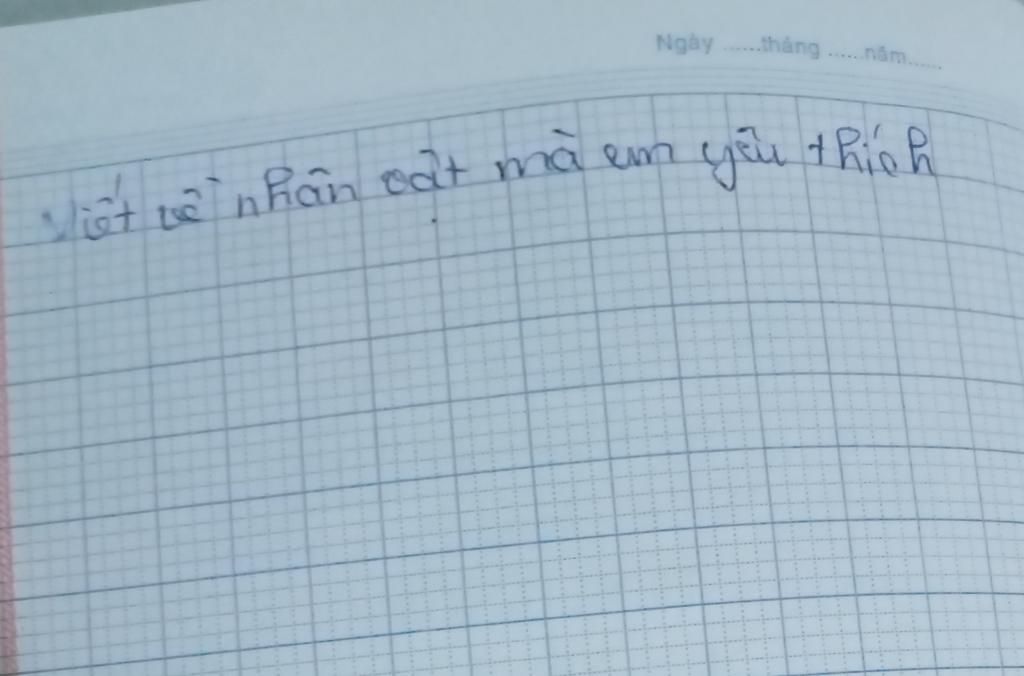 Ngày ......tháng ......năm......
Viết về nhân vật mà em yêu thích